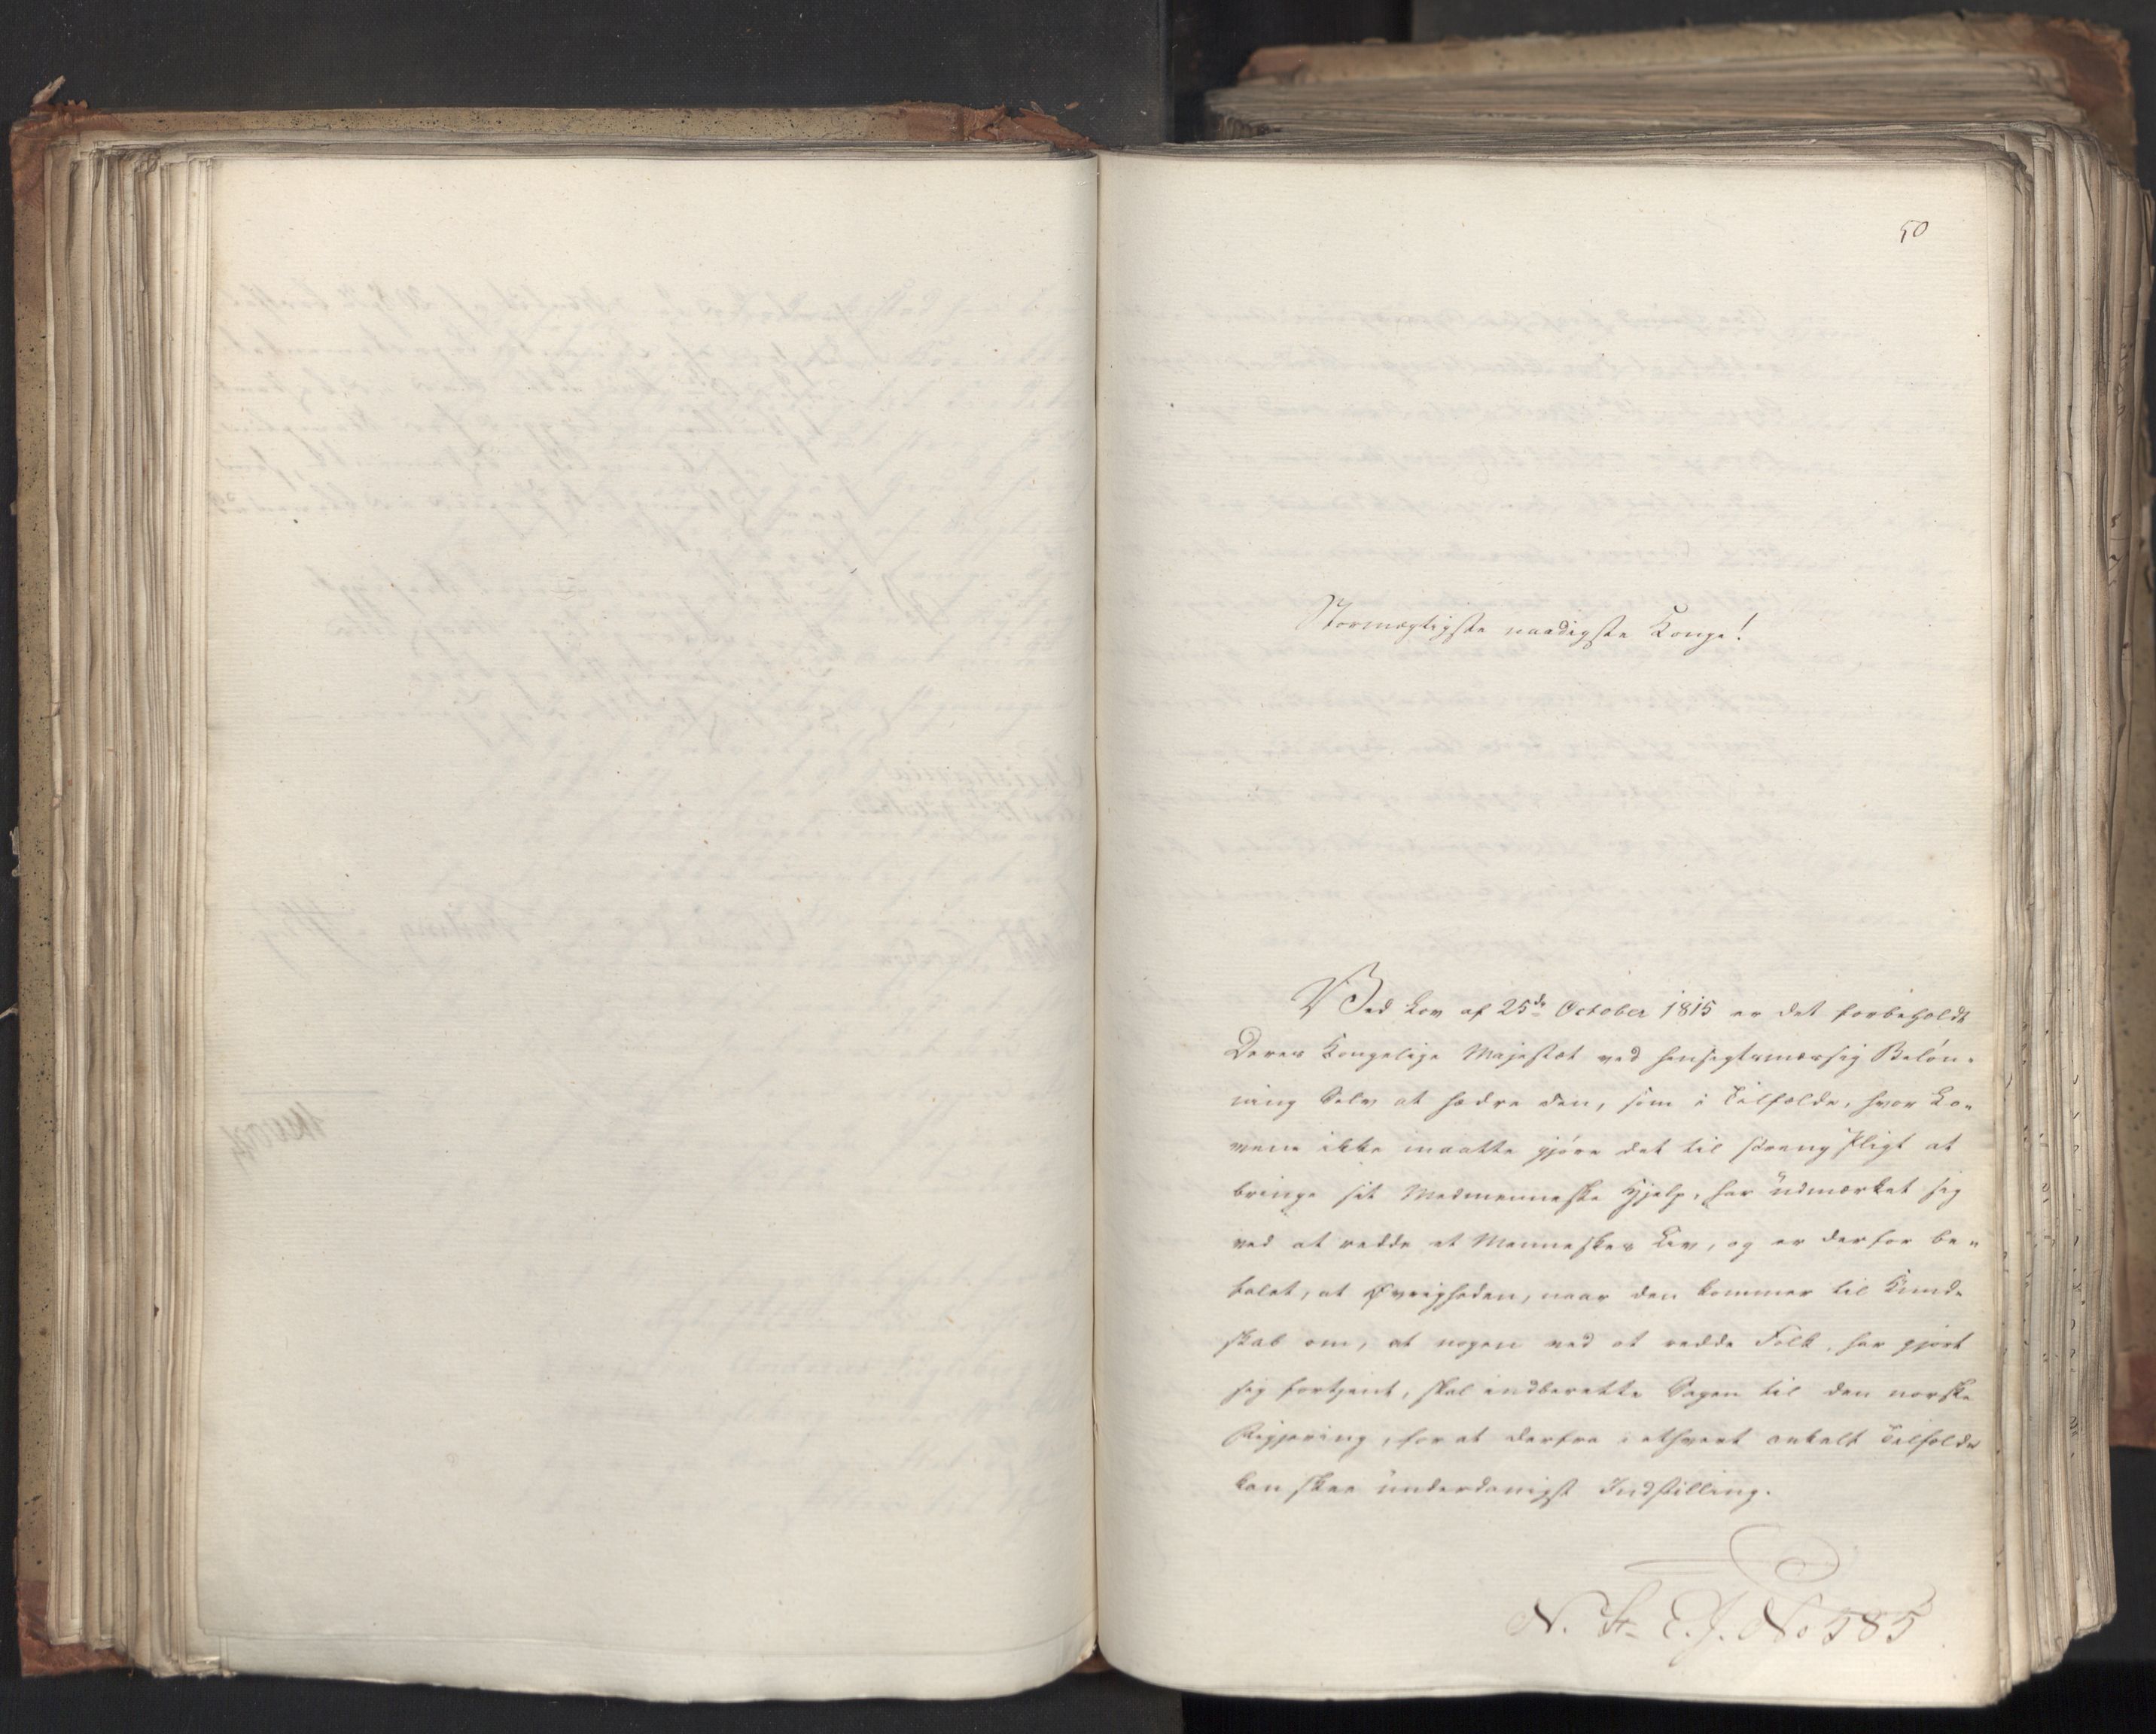 50
Stormægtigste naadigste Konge!
Ved Lov af 25de October 1815 er det forbeholdt
Deres Kongelige Majestæt ved hensigtsmæssig Beløn-
ning Selv at hædre den, som i Tilfælde, hvor Lo-
vene ikke maatte gjøre det til streng Pligt at
bringe sit Medmenneske Hjelp, har udmærket sig
ved at redde et Menneskes Liv, og er derfor be-
falet, at Øvrigheden, naar den kommer til Kund-
skab om, at nogen ved at redde Folk, har gjort
sig fortjent, skal indberette Sagen til den norske
Regjering, for at derfra i ethvert enkelt Tilfælde
kan skee underdanigst Indstilling.
N. St. E. J. No 585